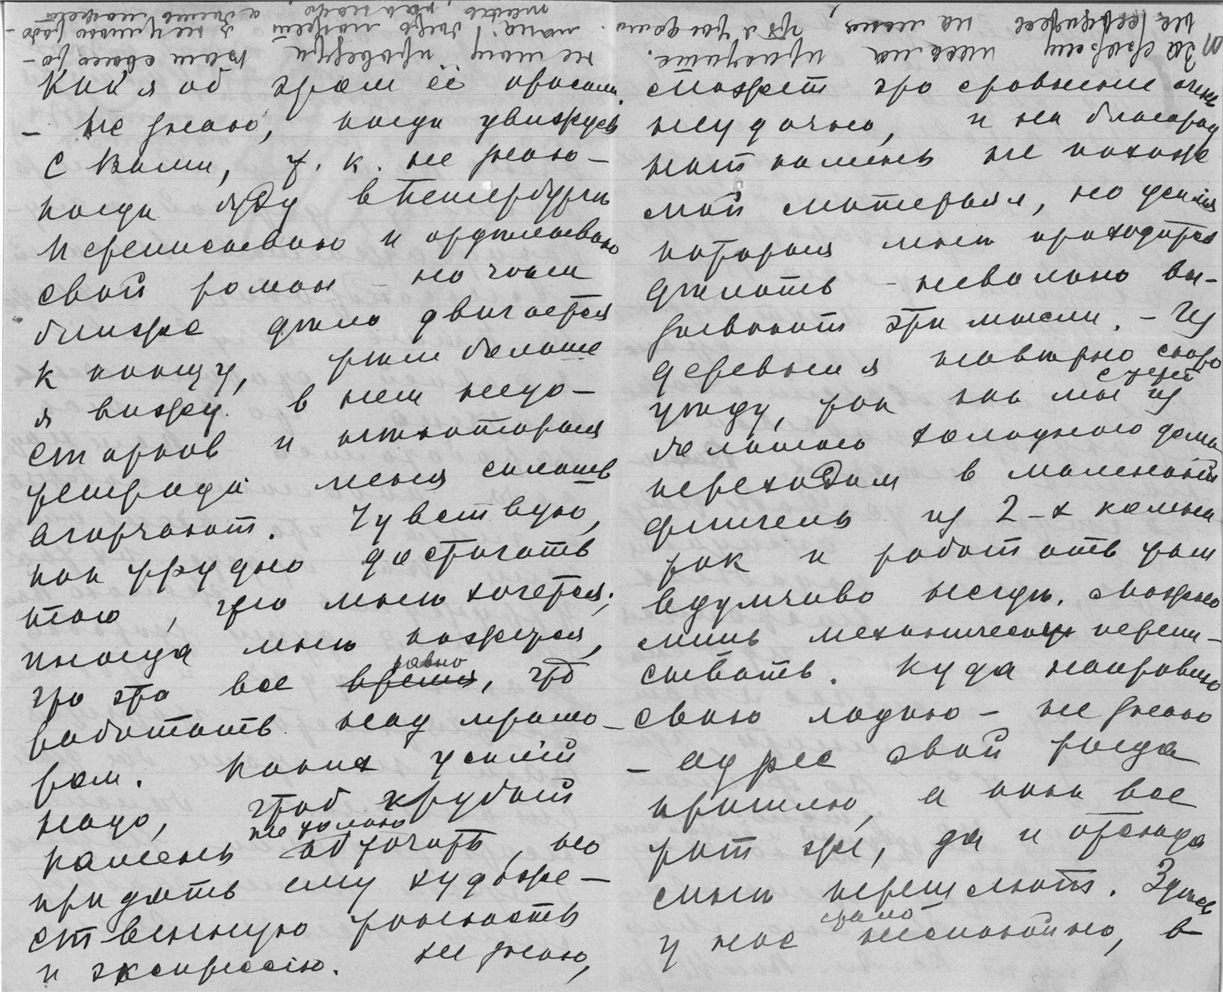 Как я об этом её просила.
– Не знаю, когда увижусь
с Вами, т. к. не знаю –
когда буду в Петербурге.
Переписываю и отделываю
свой роман – но чем
ближе дело двигается
к концу, тем больше
я вижу в нем недо-
статков и некоторая
тетрада меня сильно
огорчают. Чувствую,
как трудно достигать
того, что мне хочется;
иногда мне кажется,
что это все равно, что
работать над мрамо-
ром. Каких усилий
надо, чтоб грубый
камень не только обточить, но
придать ему художе-
ственную тонкость
и экспрессию. Не знаю,
может это сравнение очень
неудачно, и на благород
ный камень не похож
мой матерьял, но усилия
которыя мне приходится
делать – невольно вы-
зывают эти мысли. – Из
деревни наверно скоро
уеду, так как мы из
большого холоднаго дома
переходим в маленький
флигель из 2-х комна
ток и работать там
вдумчиво нельзя, можно
лишь механически перепи-
сывать. Куда направлю
свою ладью – не знаю
– адрес свой тогда
пришлю, а пока все
тот же, да и отсюда
мне перешлют. Здесь
у нас стало неспокойно, в
за письма
не сердитесь на меня,